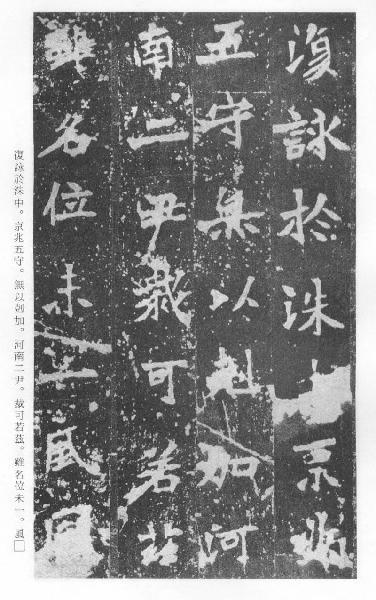 復詠於洙中京兆
五守無以尅加河
南二尹裁可若茲
雖名位未一風
復詠於洙中。京兆五守。無以剋加。河南二尹。裁可若茲。雖名位未一。風□